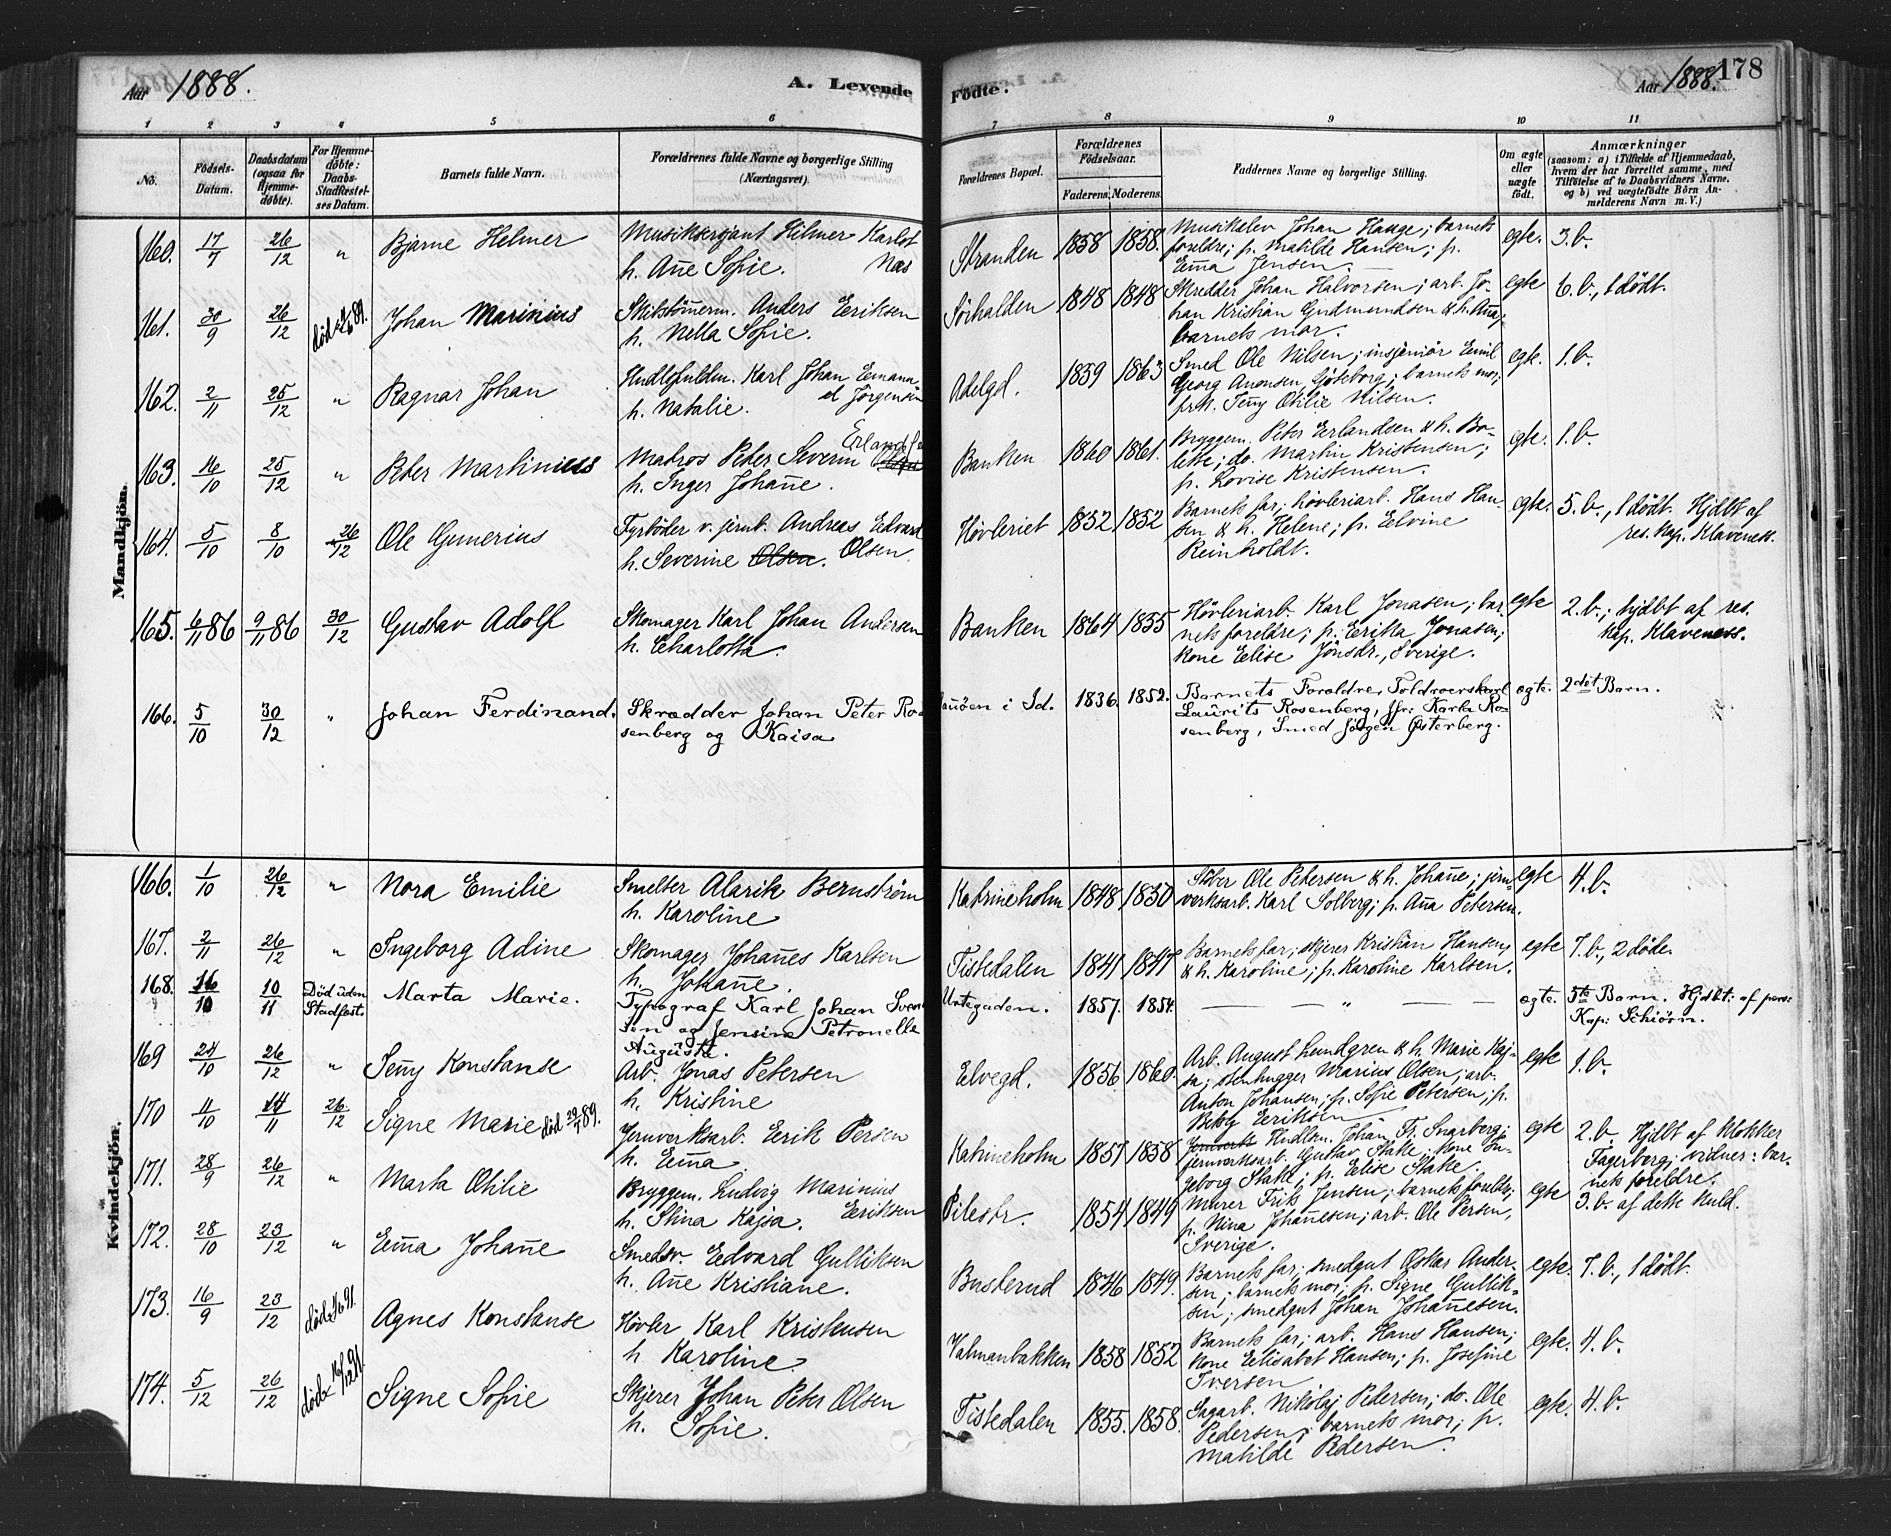 Aar 1888.
A. Levende
Fødte.
Aar 1888.
178
1 2 3 4 5 6 7 8 9 10 11
No.
Fødsels-Datum.
Daabsdatum (ogsaa for Hjemmedøbte).
For Hjemmedøbte: Daabs-Stadfæstelses Datum.
Barnets fulde Navn.
Forældrenes fulde Navne og borgerlige Stilling (Næringsvei).
Forældrenes Bopæl.
Forældrenes Fødselsaar.
Faderens. Moderens.
Faddernes Navne og borgerlige Stilling.
Om ægte eller uægte født.
Anmærkninger
(saasom: a) i Tilfælde af Hjemmedaab, hvem der har forrettet samme, med Tilføielse af to Daabsvidners Navne, og b) ved uægtefødte Børn Anmelderens Navn m. V.)
Mandkjön.
160. 17/7 26/12 " Bjarne Helmer
Musiksersjant Hilmer Karlot Næs
h. Ane Sofie.
Stranden 1858 1858.
Musikelev Johan Hauge; barnets
foreldre; p. Matilde Hansen; p.
Emma Jensen.
egte. 3. b.
161. 30/9 26/12 Johan Marinius
Skibstömerm. Anders Eriksen
h. Nella Sofie.
Sörhalden 1848 1848
Skredder Johan Halvorsen; arb. Jo-
han Kristian Gudmundsen & h. Ana;
barnets mor.
egte 6. b., 1 dödt.
162. 2/11 25/12 " Ragnar Johan
Hndlsfuldm. Karl Johan Emanu-
el Jörgensen
h. Natalie.
Adelgd. 1839 1863
Smed Ole Nilsen; insjeniör Emil
Georg Anonsen, Göteborg; barnets mor;
frk. Jenny Otilie Nilsen.
egte. 1. b.
163. 16/10 25/12 " Peter Martinius
Matros Peter Severin Erlandsen
h. Inger Johanne.
Banken 1860 1861.
Bryggem. Peter Erlandsen & h. Bo-
lette; do. Martin Kristensen;
p. Lovise Kristensen.
egte. 1. b.
164. 5/10 8/10 26/12 Ole Gunerius
Fyrböder v. jernb. Andreas Edvard
h. Severine Olsen. Olsen.
Høvleriet 1852 1852
Barnets far; hövleriarb. Hans Han-
sen & h. Helene; p. Elvine
Reinholdt.
egte. 5. b., 1 dödt. Hjdbt af
res. kap. Klaveness.
165. 6/11 86 9/11 86 30/12 Gustav Adolf
Skomager Karl Johan Andersen
h. Charlotta.
Banken 1864 1855
Hövleriarb. Karl Jonasen; bar-
nets foreldre; p. Erika Jonasen;
kone Elise Jönsdr., Sverige.
egte 2. b.; hjdbt af res.
kap. Klaveness.
166. 5/10 30/12 " Johan Ferdinand.
Skrædder Johan Peter Ro-
senberg og Kaisa
i Id. 1836. 1852.
Barnets Forældre, Toldroerskarl
Laurits Rosenberg, jfr. Karla Ro-
senberg, Smed Jörgen Østerberg.
ægte. 2det Barn.
Kvindekjön.
166. 1/10 26/12 " Nora Emilie
Smelter Alarik Bernström
h. Karoline
Katrineholm 1848 1850
Stöber Ole Petersen & h. Johanne; jern-
verksarb. Karl Solberg; p. Ana Petersen.
egte 4. b.
167. 2/11 26/12 " Ingeborg Adine
Skomager Johannes Karlsen
h. Johanne.
Tistedalen 1841 1847
Barnets far; skjerer Kristian Hansen
& h. Karoline; p. Karoline Karlsen.
egte 7. b., 2 döde.
168. 16/10 10/11 Död uden Stadfest. Marta Marie.
Typograf Karl Johan Svend-
sen og Jensine Petronelle
Augusta.
Urtegaden. 1857. 1854.
— " — —
ægte. 5te Barn. Hjdbt: af pers:
Kap: Schiørn.
169 24/10 26/12 " Jenny Konstanse
Arb. Jonas Petersen
h. Kristine
Elvegd. 1856. 1860.
Arb. August Lundgren & h. Marie Kaj-
sa; stenhugger Marius Olsen; arb.
Anton Johansen; p. Sofie Petersen; p.
Betsy Eriksen.
egte 1. b.
170 11/10 14/11 26/12 Signe Marie död 29/1 89.
Jernverksarb. Erik Persen
h. Emma
Katrineholm 1857 1858
Jernverk Hndlsm. Johan Fr. Snarberg;
jernverksarb. Gustav Stake; kone In-
geborg Stake; p. Elise Stake.
egte 2. b. Hjdbt af klokker
Fagerberg; vidner: bar-
nets foreldre.
171. 28/9 26/12 " Marta Otilie
Bryggem. Ludvig Marinius
h. Stina Kajsa. Eriksen
Pilestr. 1854 1849
Murer Frits Jensen; barnets foreldre;
p. Nina Johannesen; arb. Ole Persen,
Sverige.
egte 3. b. af dette kuld.
172. 28/10 23/12 " Emma Johanne
Smedsv. Edvard Gulliksen
h. Ane Kristiane.
Busterud 1846 1849.
Barnets far; smedgut Oskar Ander-
sen; barnets mor; p. Signe Gullik-
sen; smedgut Johan Johannesen.
egte. 7. b., 1 dödt.
173. 16/9 23/12 Agnes Konstanse
Høvler Karl Kristensen
h. Karoline
Valmanbakken 1858 1852
Barnets far; arb. Hans Hansen;
kone Elisabet Hansen; p. Josefine
Iversen
egte. 4. b.
174. 5/12 26/12 Signe Sofie
Skjerer Johan Peter Olsen
h. Sofie.
Tistedalen 1855. 1858.
Sagarb. Nikolaj Pedersen; do. Ole
Pedersen; barnets mor; p.
Matilde Pedersen.
egte. 4. b.